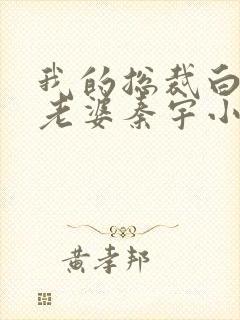 我的总裁白
老婆秦宇小
黄孝邦